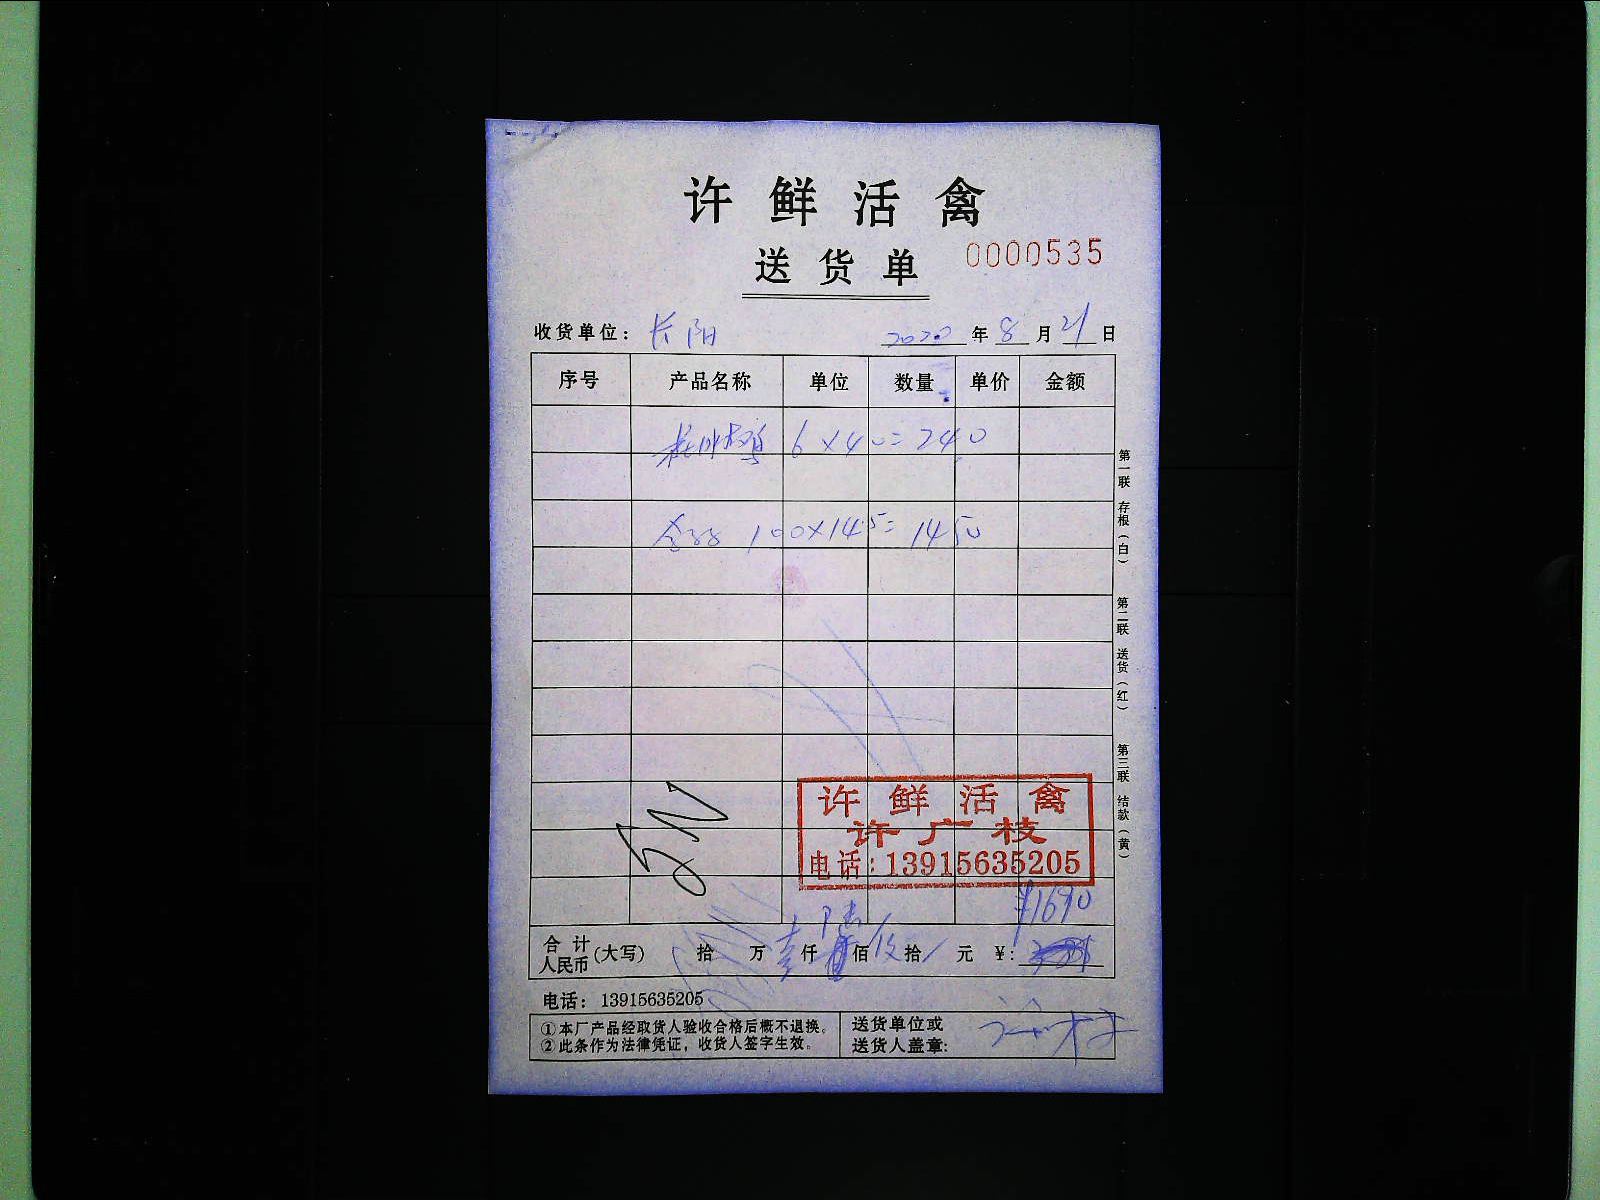 许鲜活禽
送货单 0000535
收货单位: 长阳 2020年8月21日
序号 产品名称 单位 数量 单价 金额
6×40=240
100×14.5=1450
许鲜活禽
许广枝
电话:13915635205
¥1690
合计人民币(大写) 拾 万 仟 佰 拾 元 ¥:
电话: 13915635205
①本厂产品经取货人验收合格后概不退换。
②此条作为法律凭证，收货人签字生效。
送货单位或
送货人盖章:
第一联 存根(白) 第二联 送货(红) 第三联 结款(黄)